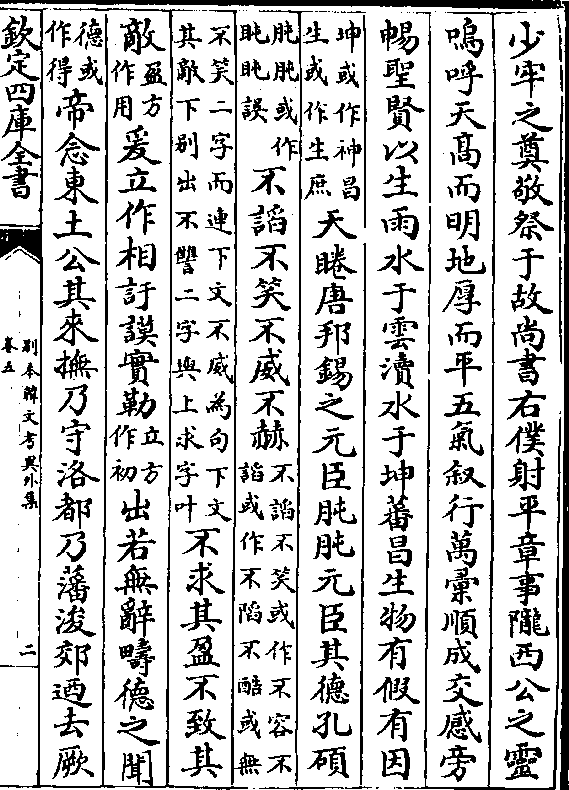 少牢之奠敬祭于故尚書右僕射平章事隴西公之靈
嗚呼天髙而明地厚而平五氣叙行萬彙順成交感旁
暢聖賢以生雨水于雲瀆水于坤蕃昌生物有假有因
坤或作神昌
生或作生庶
天睠唐邦錫之元臣肫肫元臣其德孔碩
肫肫或作
盹盹誤
不諂不笑不威不赫
不諂不笑或作不容不
謟或作不䧟不酷或無
不笑二字而連下文不威為句下文
其敵下别出不讐二字與上求字叶
不求其盈不致其
敵
盈方
作用
爰立作相訏謨實勒
立方
作初
出若無辭疇德之聞
德或
作得
帝念東土公其來撫乃守洛都乃藩浚郊迺去厥
欽定四庫全書
别本韓文考異外集
卷五
二